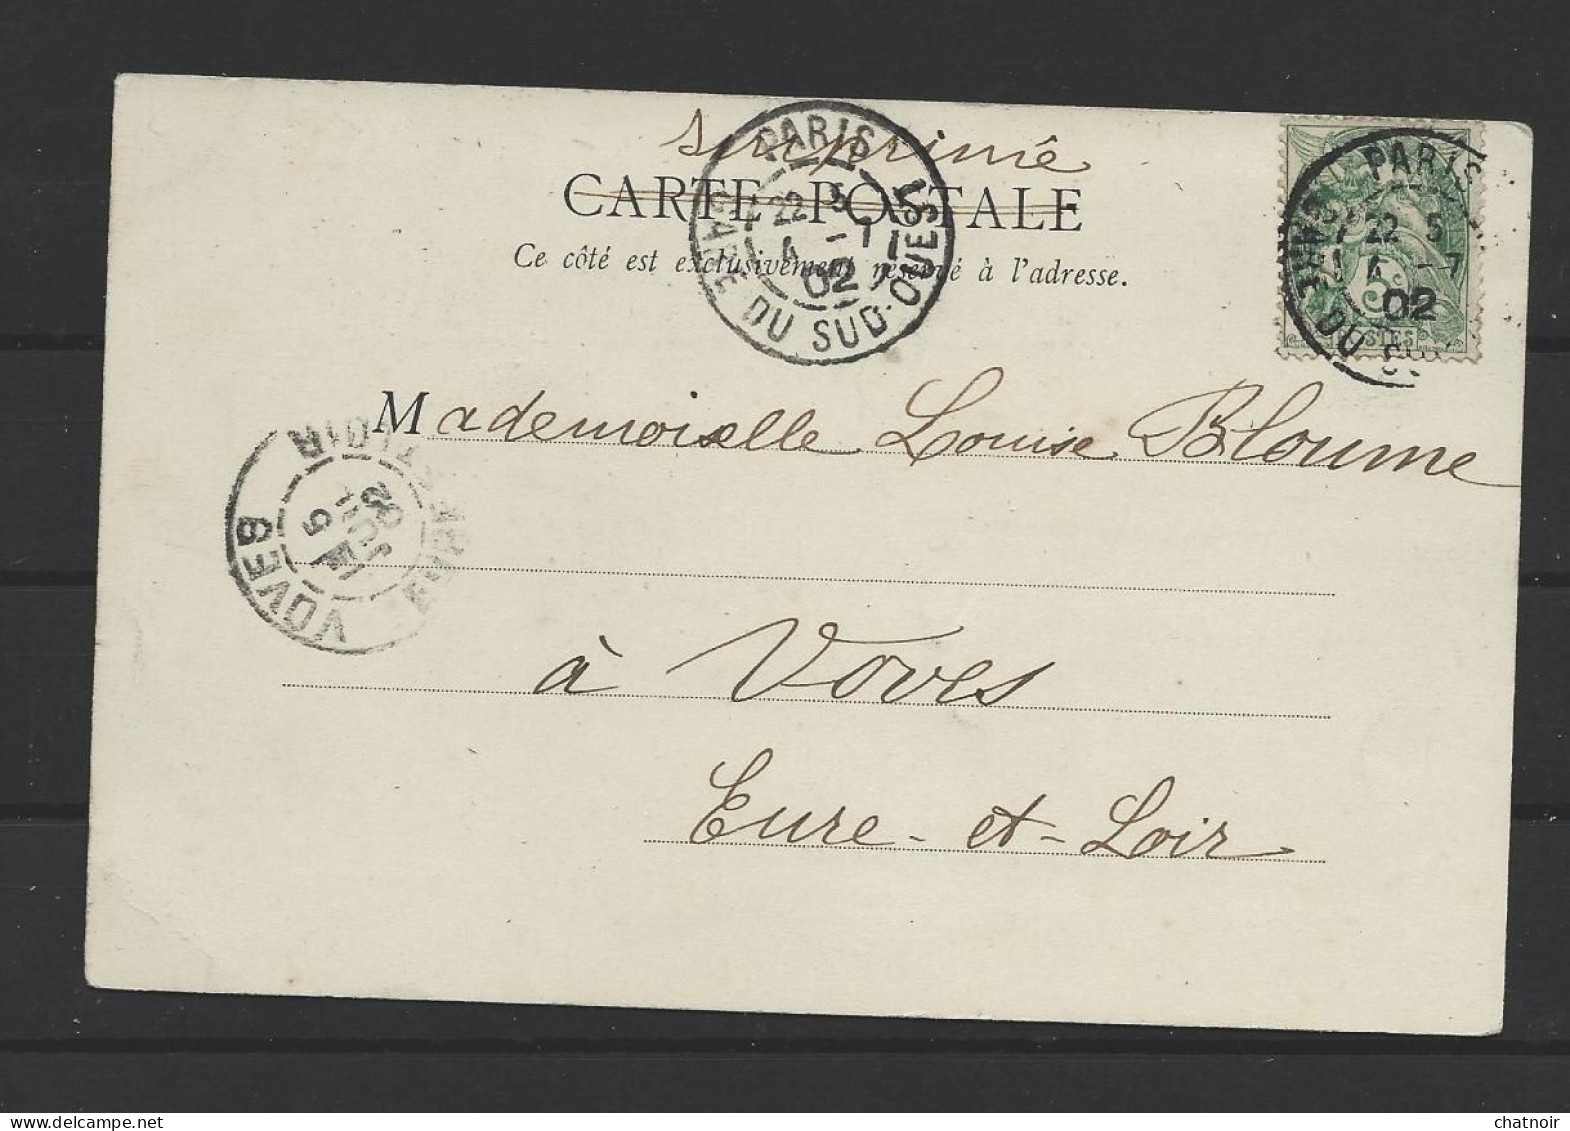 imprimé
CARTE POSTALE
Ce côté est exclusivement réservé à l'adresse.
PARIS
22 5
4 -7
02
GARE DU SUD-OUEST
PARIS
22 5
4 -7
02
GARE DU SU
5c
POSTES
Mademoiselle Louise Bloume
VOVES
EURE ET LOIR
5
JUIL
02
à Voves
Eure-et-Loir
chatnoir